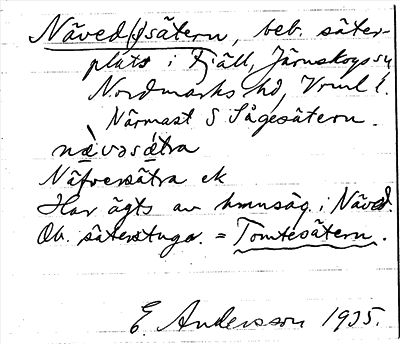 Näved(s)sätern, beb. säter-
plats i Fjäll, Järnskogs sn
Nordmarks hd, Vrml l.
Närmast S Sågesätern.
nævəsætra
Näfversätra ek
Har ägts av hmnsäg. i Näved.
Ob. säterstuga. = Tomtesätern.
E. Andersson 1935.